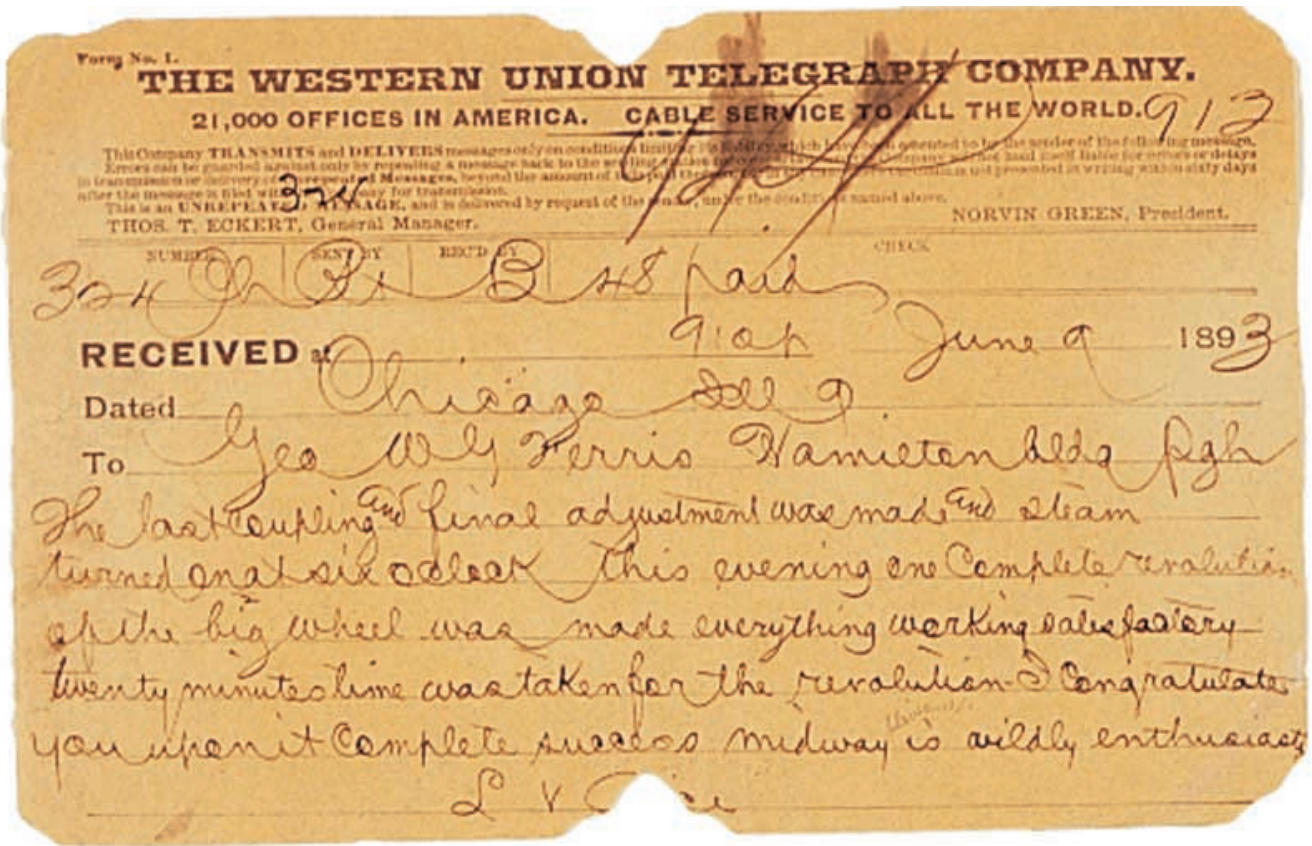 Form No. 1.
THE WESTERN UNION TELEGRAPH COMPANY.
21,000 OFFICES IN AMERICA. CABLE SERVICE TO ALL THE WORLD. 913
This Company TRANSMITS and DELIVERS messages only on conditions limiting its liability, which have been assented to by the sender of the following message.
Errors can be guarded against only by repeating a message back to the sending station
in transmission or delivery of Unrepeated Messages, beyond the amount of tolls paid thereon, in writing within sixty days
after the message is filed with the Company for transmission.
This is an UNREPEATED MESSAGE, and is delivered by request of the sender, under the conditions named above.
324
THOS. T. ECKERT, General Manager. NORVIN GREEN, President.
NUMBER SENT BY REC'D BY CHECK
324 Ch B 48 paid
RECEIVED at 910p June 9 1893
Dated Chicago Ill 9
To Geo W G Ferris Hamilton bldg Pgh
The last coupling and final adjustment was made and steam
turned on at six oclock this evening one Complete revolution
of the big wheel was made everything working satisfactory
twenty minutes time was taken for the revolution I Congratulate
you upon it Complete success midway is wildly enthusiastic
L V